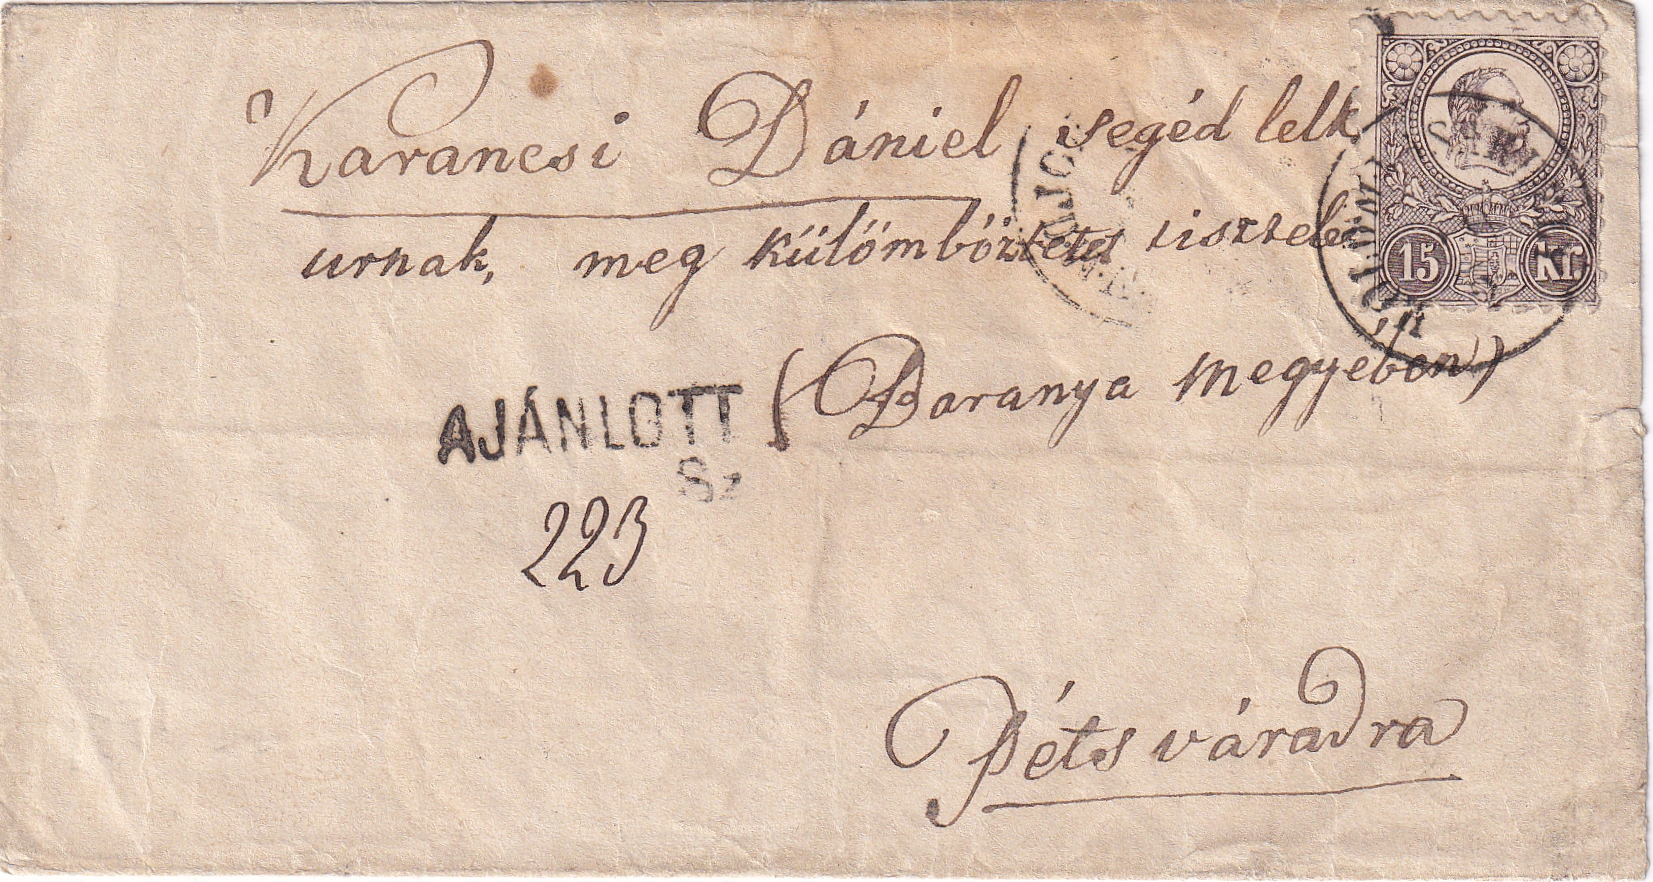 Karancsi Dániel segéd lelk
urnak, meg külömböztetet tisztele
(Baranya Megyében)
AJÁNLOTT
Sz
223
Pétsváradra
15 kr.